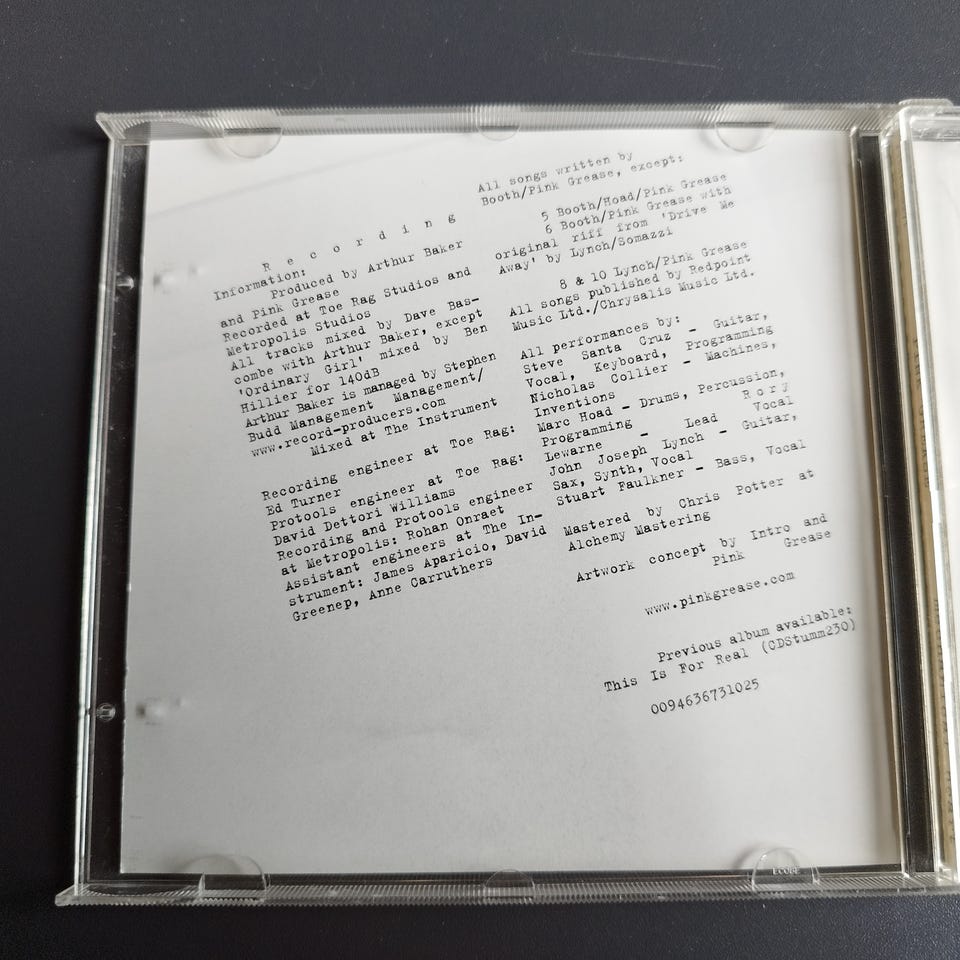 R e c o r d i n g
Information:
Produced by Arthur Baker
and Pink Grease
Recorded at Toe Rag Studios and
Metropolis Studios
All tracks mixed by Dave Bas-
combe with Arthur Baker, except
'Ordinary Girl' mixed by Ben
Hillier for 140dB
Arthur Baker is managed by Stephen
Budd Management Management/
www.record-producers.com
Mixed at The Instrument
Recording engineer at Toe Rag:
Ed Turner
Protools engineer at Toe Rag:
David Dettori Williams
Recording and Protools engineer
at Metropolis: Rohan Onraet
Assistant engineers at The In-
strument: James Aparicio, David
Greenep, Anne Carruthers
All songs written by
Booth/Pink Grease, except:
5 Booth/Hoad/Pink Grease
6 Booth/Pink Grease with
original riff from 'Drive Me
Away' by Lynch/Somazzi
8 & 10 Lynch/Pink Grease
All songs published by Redpoint
Music Ltd./Chrysalis Music Ltd.
All performances by:
Steve Santa Cruz - Guitar,
Vocal, Keyboard, Programming
Nicholas Collier - Machines,
Inventions
Marc Hoad - Drums, Percussion,
Programming Rory
Lewarne - Lead Vocal
John Joseph Lynch - Guitar,
Sax, Synth, Vocal
Stuart Faulkner - Bass, Vocal
Mastered by Chris Potter at
Alchemy Mastering
Artwork concept by Intro and
Pink Grease
www.pinkgrease.com
Previous album available:
This Is For Real (CDStumm230)
0094636731025